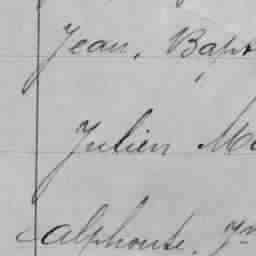 Jean, Bapt
Julien Ma
Alphonse,